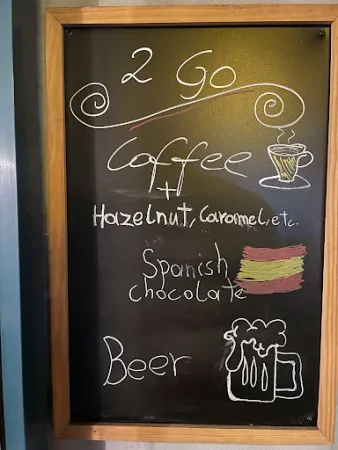 2 Go
Coffee
+
Hazelnut, Caramel, etc.
Spanish
chocolate
Beer